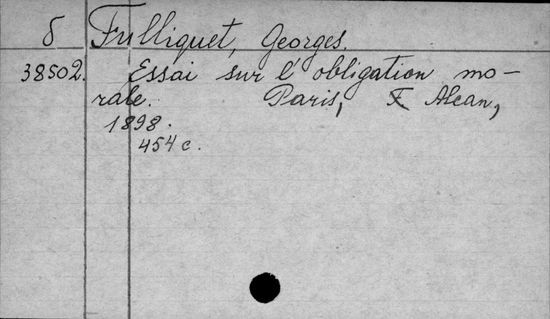 δ Fulliquet, Georges.
38502. Essai sur l'obligation mo-
rale. Paris, F Alcan,
1898.
454 c.